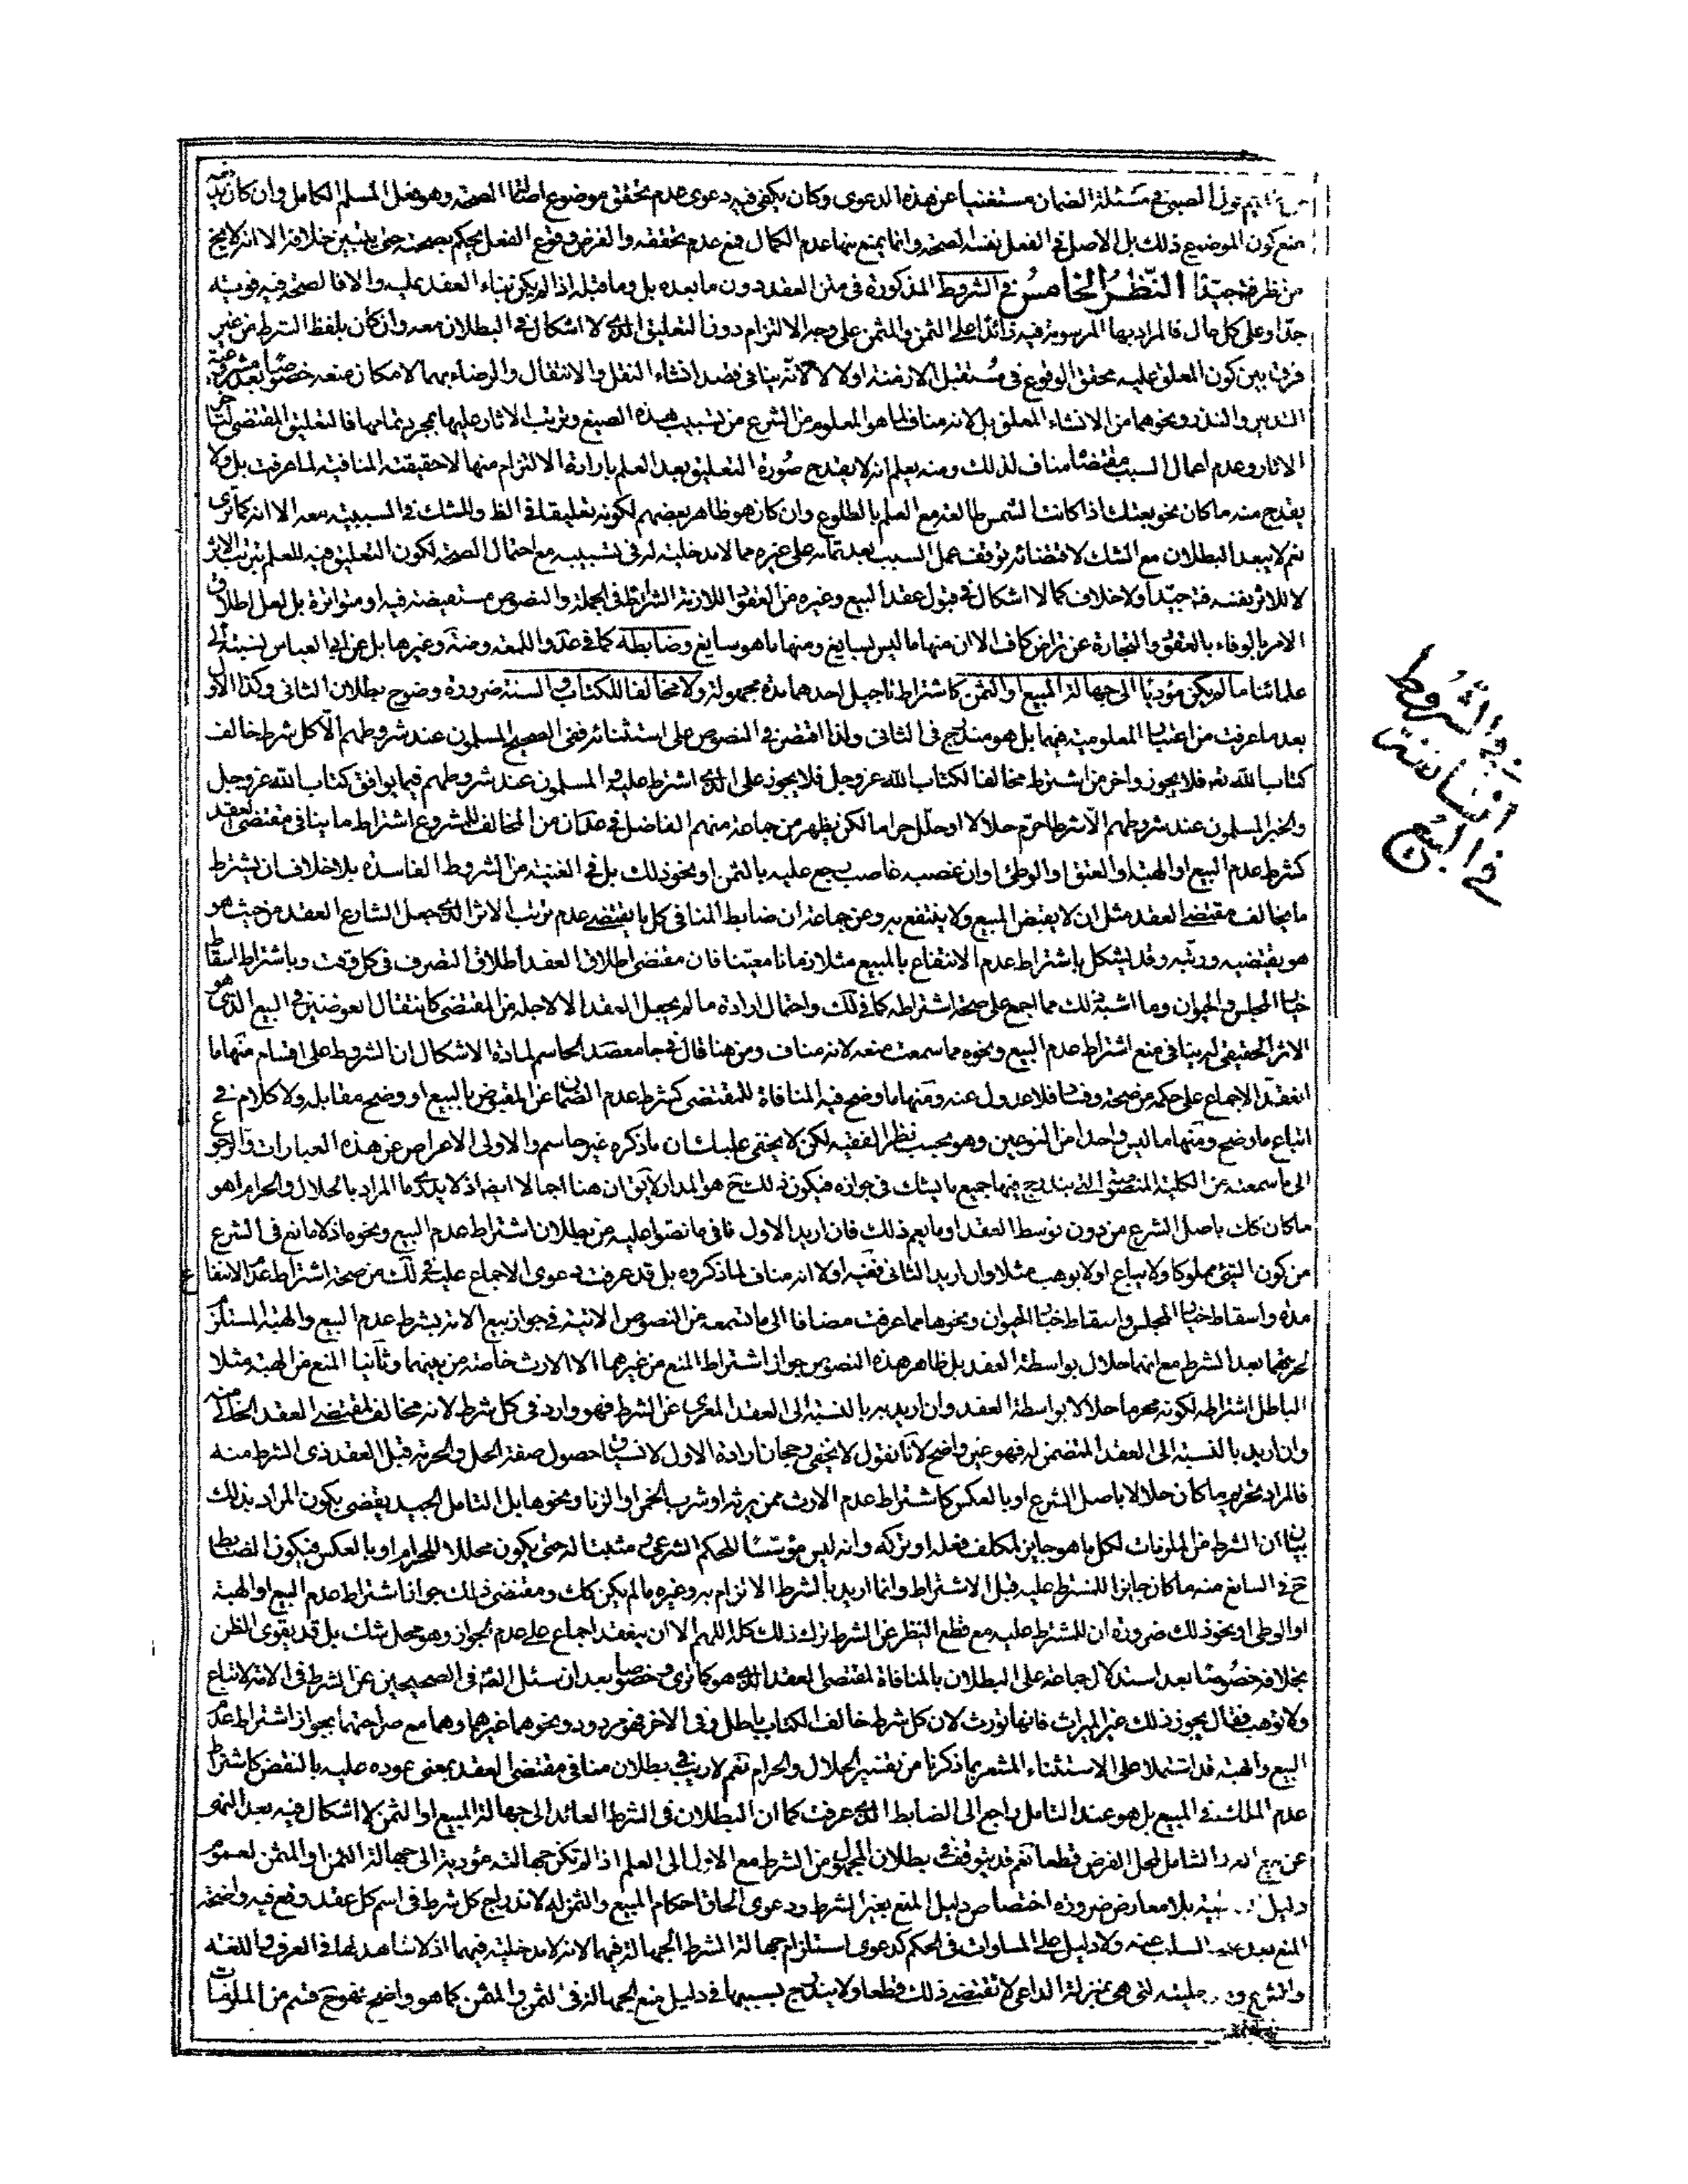 تقديم قول الصبي في مسئلة الضمان مستغنيا عن هذه الدعوى وكان يكفى فيه دعوى عدم تحقق موضوع اصالة الصحة وهو فعل المسلم الكامل وان كان فيه
منع كون الموضوع ذلك بل الاصل في الفعل نفسه الصحة وانما يمنع منها عدم الكمال فمع عدم تحققه والفرض وقوع الفعل يحكم بصحته حتى يتبين خلافه الا انه لا يخ
من نظر فت جيدا النظر الخامس في الشروط المذكورة في متن العقد دون ما بعده بل وما قبله اذا لم يكن بناء العقد عليه والا فالصحة فيه قوية
جدا وعلى كل حال فالمراد بها المرسومة فيه زائدا على الثمن والمثمن على وجه الالتزام دون التعليق الذى لا اشكال في البطلان معه وان كان بلفظ الشرط من غير
فرق بين كون المعلق عليه محقق الوقوع في مستقبل الازمنة اولا لا لانه ينافى قصد انشاء النقل والانتقال والرضاء بهما لامكان منعه خصوصا بعد مشروعية
التدبير والنذر ونحوهما من الانشاء المعلق بل لانه مناف لما هو المعلوم من الشرع من تسبيب هذه الصيغ وترتب الاثار عليها بمجرد تمامها فالتعليق المقتضى لتاخر
الاثار وعدم اعمال السبب مقتضاه مناف لذلك ومنه يعلم انه لا يقدح صورة التعليق بعد العلم بارادة الالتزام منها لا حقيقته المنافية لما عرفت بل ولا
يقدح منه ما كان نحو بعتك اذا كانت الشمس طالعة مع العلم بالطلوع وان كان هو ظاهر بعضهم لكونه تعليقا في الظ والشك في السببية معه الا انه كما ترى
نعم لا يبعد البطلان مع الشك لاقتضائه توقف عمل السبب بعد تمامه على غيره مما لا مدخلية له في تسبيبه مع احتمال الصحة لكون التعليق فيه للعلم بترتب الاثر
لا للاثر نفسه فت جيدا ولا خلاف كما لا اشكال في قبول عقد البيع وغيره من العقود اللازمة الشرائط في الجملة والنصوص مستفيضة فيه او متواترة بل لعل اطلاق
الامر بالوفاء بالعقود والتجارة عن تراض كاف الا ان منها ما ليس بسايغ ومنها ما هو سايغ وضابطه كما في عد واللمعة وضة وغيرها بل عن ابى العباس نسبته الى
علمائنا ما لم يكن مؤديا الى جهالة المبيع او الثمن كاشتراط تاجيل احدهما مدة مجهولة ولا مخالفا للكتاب والسنة ضرورة وضوح بطلان الثانى وكذا الاول
بعد ما عرفت من اعتبار المعلومية فيهما بل هو مندرج في الثانى ولذا اقتصر في النصوص على استثنائه ففى الصحيح المسلمون عند شروطهم الا كل شرط خالف
كتاب الله عز وجل فلا يجوز واخر من اشترط مخالفا لكتاب الله عز وجل فلا يجوز على الذى اشترط عليه والمسلمون عند شروطهم فيما يوافق كتاب الله عز وجل
والخبر المسلمون عند شروطهم الا شرطا حرم حلالا او حلل حراما لكن يظهر من جماعة منهم الفاضل في عد ان من المخالف للمشروع اشتراط ما ينافى مقتضى العقد
كشرط عدم البيع او الهبة او العتق او الوطى او ان غصبه غاصب رجع عليه بالثمن او نحو ذلك بل في الغنية من الشروط الفاسدة بلا خلاف ان يشترط
ما يخالف مقتضى العقد مثل ان لا يقبض المبيع ولا ينتفع به وعن جماعة ان ضابط المنافى كل ما يقتضى عدم ترتب الاثر الذى جعل الشارع العقد من حيث هو
هو يقتضيه ورتبه وقد اشكل باشتراط عدم الانتفاع بالمبيع مثلا زمانا معينا فان مقتضى اطلاق العقد اطلاق التصرف في كل وقت وباشتراط اسقاط
خيار المجلس والحيوان وما اشبه ذلك مما اجمع على صحة اشتراطه كما في لك واحتمال ارادة ما لم يجعل العقد الا لاجله من المقتضى كانتقال العوضين في البيع الذى هو
الاثر الحقيقى له ينافى منع اشتراط عدم البيع ونحوه مما سمعت منعه لانه مناف ومن هنا قال في جامع صد الحاسم لمادة الاشكال ان الشروط على اقسام منها ما
انعقد الاجماع على حكمه من صحة وفساد فلا عدول عنه ومنها ما وضح فيه المنافاة للمقتضى كشرط عدم الضمان عن المقبوض بالبيع او وضح مقابله ولا كلام في
اتباع ما وضح ومنها ما ليس واحدا من النوعين وهو بحسب نظر الفقيه لكن لا يخفى عليك ان ما ذكره غير حاسم والاولى الاعراض عن هذه العبارات والرجوع
الى ما سمعته من الكلية المنصوصة التى يندرج فيها جميع ما يشك في جوازه فيكون ذلك ح هو المدار لا يق ان هنا اجمالا ايضا اذ لا يدرى ما المراد بالحلال والحرام اهو
ما كان كك باصل الشرع من دون توسط العقد او ما يعم ذلك فان اريد الاول نافى ما نصوا عليه من بطلان اشتراط عدم البيع ونحوه اذ لا مانع في الشرع
من كون الشئ مملوكا ولا يباع او لا يوهب مثلا وان اريد الثانى ففيه اولا انه مناف لما ذكروه بل قد عرفت دعوى الاجماع عليه في لك من صحة اشتراط عدم الانتفاع
مدة واسقاط خيار المجلس واسقاط خيار الحيوان ونحوها مما عرفت مضافا الى ما تسمعه من النصوص الاتية في جواز بيع الامة بشرط عدم البيع والهبة المستلزم
لحرمتهما بعد الشرط مع انهما حلال بواسطة العقد بل ظاهر هذه النصوص جواز اشتراط المنع من غيرهما الا الارث خاصة من بينهما وثانيا المنع من الهبة مثلا
الباطل اشتراطه لكونه محرما حلالا بواسطة العقد وان اريد به بالنسبة الى العقد المعرى عن الشرط فهو وارد في كل شرط لانه مخالف لمقتضى العقد الخالى منه
وان اريد بالنسبة الى العقد المتضمن له فهو غير واضح لانا نقول لا يخفى رجحان ارادة الاول لانسياق حصول صفة الحل والحرمة قبل العقد ذى الشرط منه
فالمراد تحريم ما كان حلالا باصل الشرع او بالعكس كاشتراط عدم الارث ممن يرثه او شرب الخمر او الزنا ونحوها بل التامل الجيد يقضى بكون المراد بذلك
بيان ان الشرط من الملزمات لكل ما هو جايز للمكلف فعله او تركه وانه ليس مؤسسا للحكم الشرعى ومثبتا له حتى يكون محللا للحرام او بالعكس فيكون الضابط
ح في السايغ منه ما كان جايزا للمشترط عليه قبل الاشتراط وانما اريد بالشرط الالزام به وغيره ما لم يكن كك ومقتضى ذلك جواز اشتراط عدم البيع او الهبة
او الوطى او نحو ذلك ضرورة ان للمشترط عليه مع قطع النظر عن الشرط ترك ذلك كله اللهم الا ان ينعقد اجماع على عدم الجواز وهو محل شك بل قد يقوى الظن
بخلافه خصوصا بعد استدلال جماعة على البطلان بالمنافاة لمقتضى العقد الذى هو كما ترى وخصوصا بعد ان سئل الصم في الصحيحين عن الشرط في الامة لا تباع
ولا توهب فقال يجوز ذلك غير الميراث فانها تورث لان كل شرط خالف الكتاب باطل وفى الاخر فهو مردود ونحوهما غيرهما وهما مع صراحتهما بجواز اشتراط عدم
البيع والهبة قد اشتملا على الاستثناء المشعر بما ذكرنا من تفسير الحلال والحرام نعم لا ريب في بطلان منافى مقتضى العقد بمعنى عوده عليه بالنقض كاشتراط
عدم الملك في المبيع بل هو عند التامل راجع الى الضابط الذى عرفت كما ان البطلان في الشرط العائد الى جهالة المبيع او الثمن لا اشكال فيه بعد النهى
عن بيع الغرر الشامل لمحل الفرض قطعا نعم قد يتوقف في بطلان المجهول من الشرط مع الاول الى العلم اذا لم تكن جهالته مؤدية الى جهالة الثمن او المثمن لعموم
دليل بلا معارض ضرورة اختصاص دليل المنع بغير الشرط ودعوى الحاق احكام المبيع والثمن له لاندراج كل شرط في اسم كل عقد وقع فيه واضحة
المنع بعد السلب عنه ولا دليل على المساوات في الحكم كدعوى استلزام جهالة الشرط الجهالة فيهما لانه لا مدخلية فيهما اذ لا شاهد لها في العرف واللغة
والشرع التى هى بمنزلة الداعى لا تقتضى ذلك قطعا ولا يندرج بسببها في دليل منع الجهالة في الثمن والمثمن كما هو واضح فهو ح قسم من الملزمات
في الشروط
السائغة
في البيع